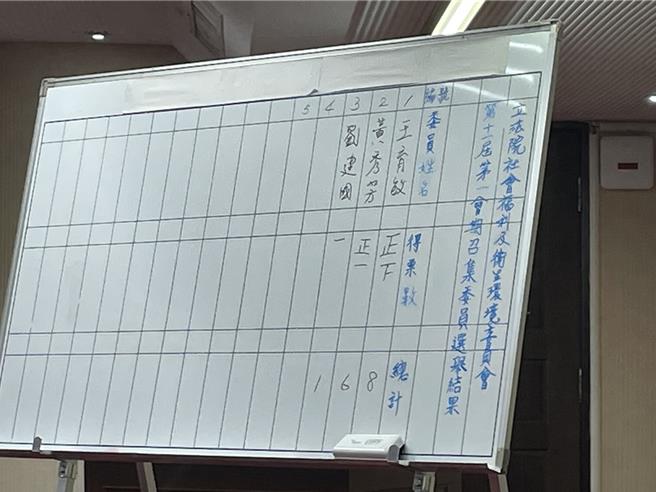 立法院社會福利及衛生環境委員會
第十一屆第一會期召集委員選舉結果
編號 委員姓名 得票數 總計
1 王育敏 正下 8
2 黃秀芳 正一 6
3 劉建國 一 1
4
5